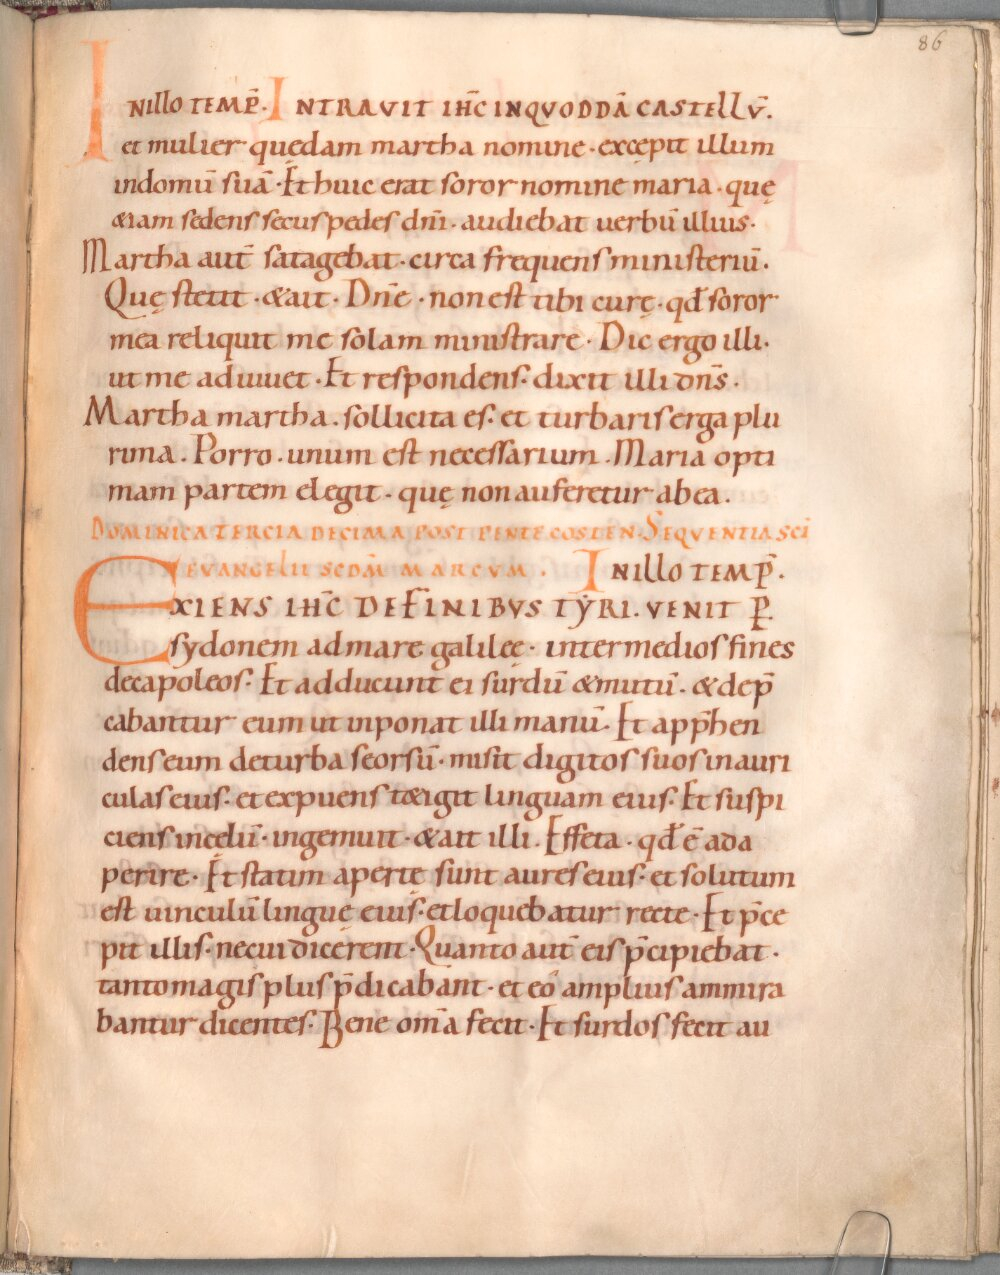 86
IN ILLO TEMP̄. INTRAVIT IH̄C IN QVODDĀ CASTELLV̄.
et mulier quędam martha nomine· excępit illum
in domū suā· Et huic erat soror nomine maria· quę
&iam sedens secus pedes dn̄i· audiebat uerbū illius·
Martha aut̄ satagebat· circa frequens ministeriū.
Quę stetit· & ait· Dn̄e· non est tibi curę· qđ soror
mea reliquit me solam ministrare· Dic ergo illi.
ut me adiuuet· Et respondens· dixit illi dn̄s·
Martha martha. sollicita es· et turbaris erga plu
rima. Porro. unum est necessarium. Maria opti
mam partem elegit· quę non auferetur ab ea.
DOMINICA TERCIA DECIMA POST PENTECOSTEN· SEQUENTIA SC̄I
EVANGELII SCDM̄ MARCVM· IN ILLO TEMP̄.
EXIENS IH̄C DE FINIBVS TẎRI. VENIT P̱
sydonem ad mare galileę· inter medios fines
decapoleos· Et adducunt ei surdū & mutū· & dep̄
cabantur eum ut inponat illi manū· Et app̄hen
dens eum de turba seorsū· misit digitos suos in auri
culas eius· et expuens t&igit linguam eius· Et suspi
ciens in cęlū· ingemuit· & ait illi. Effeta· qđ ē ada
perire· Et statim apertę sunt aures eius· et solutum
est uinculū linguę eius· et loquebatur recte· Et p̄ce
pit illis· ne cui dicerent· Quanto aut̄ eis p̄cipiebat·
tanto magis plus p̄dicabant· et eo amplius ammira
bantur dicentes· Bene om̄a fecit· Et surdos fecit au